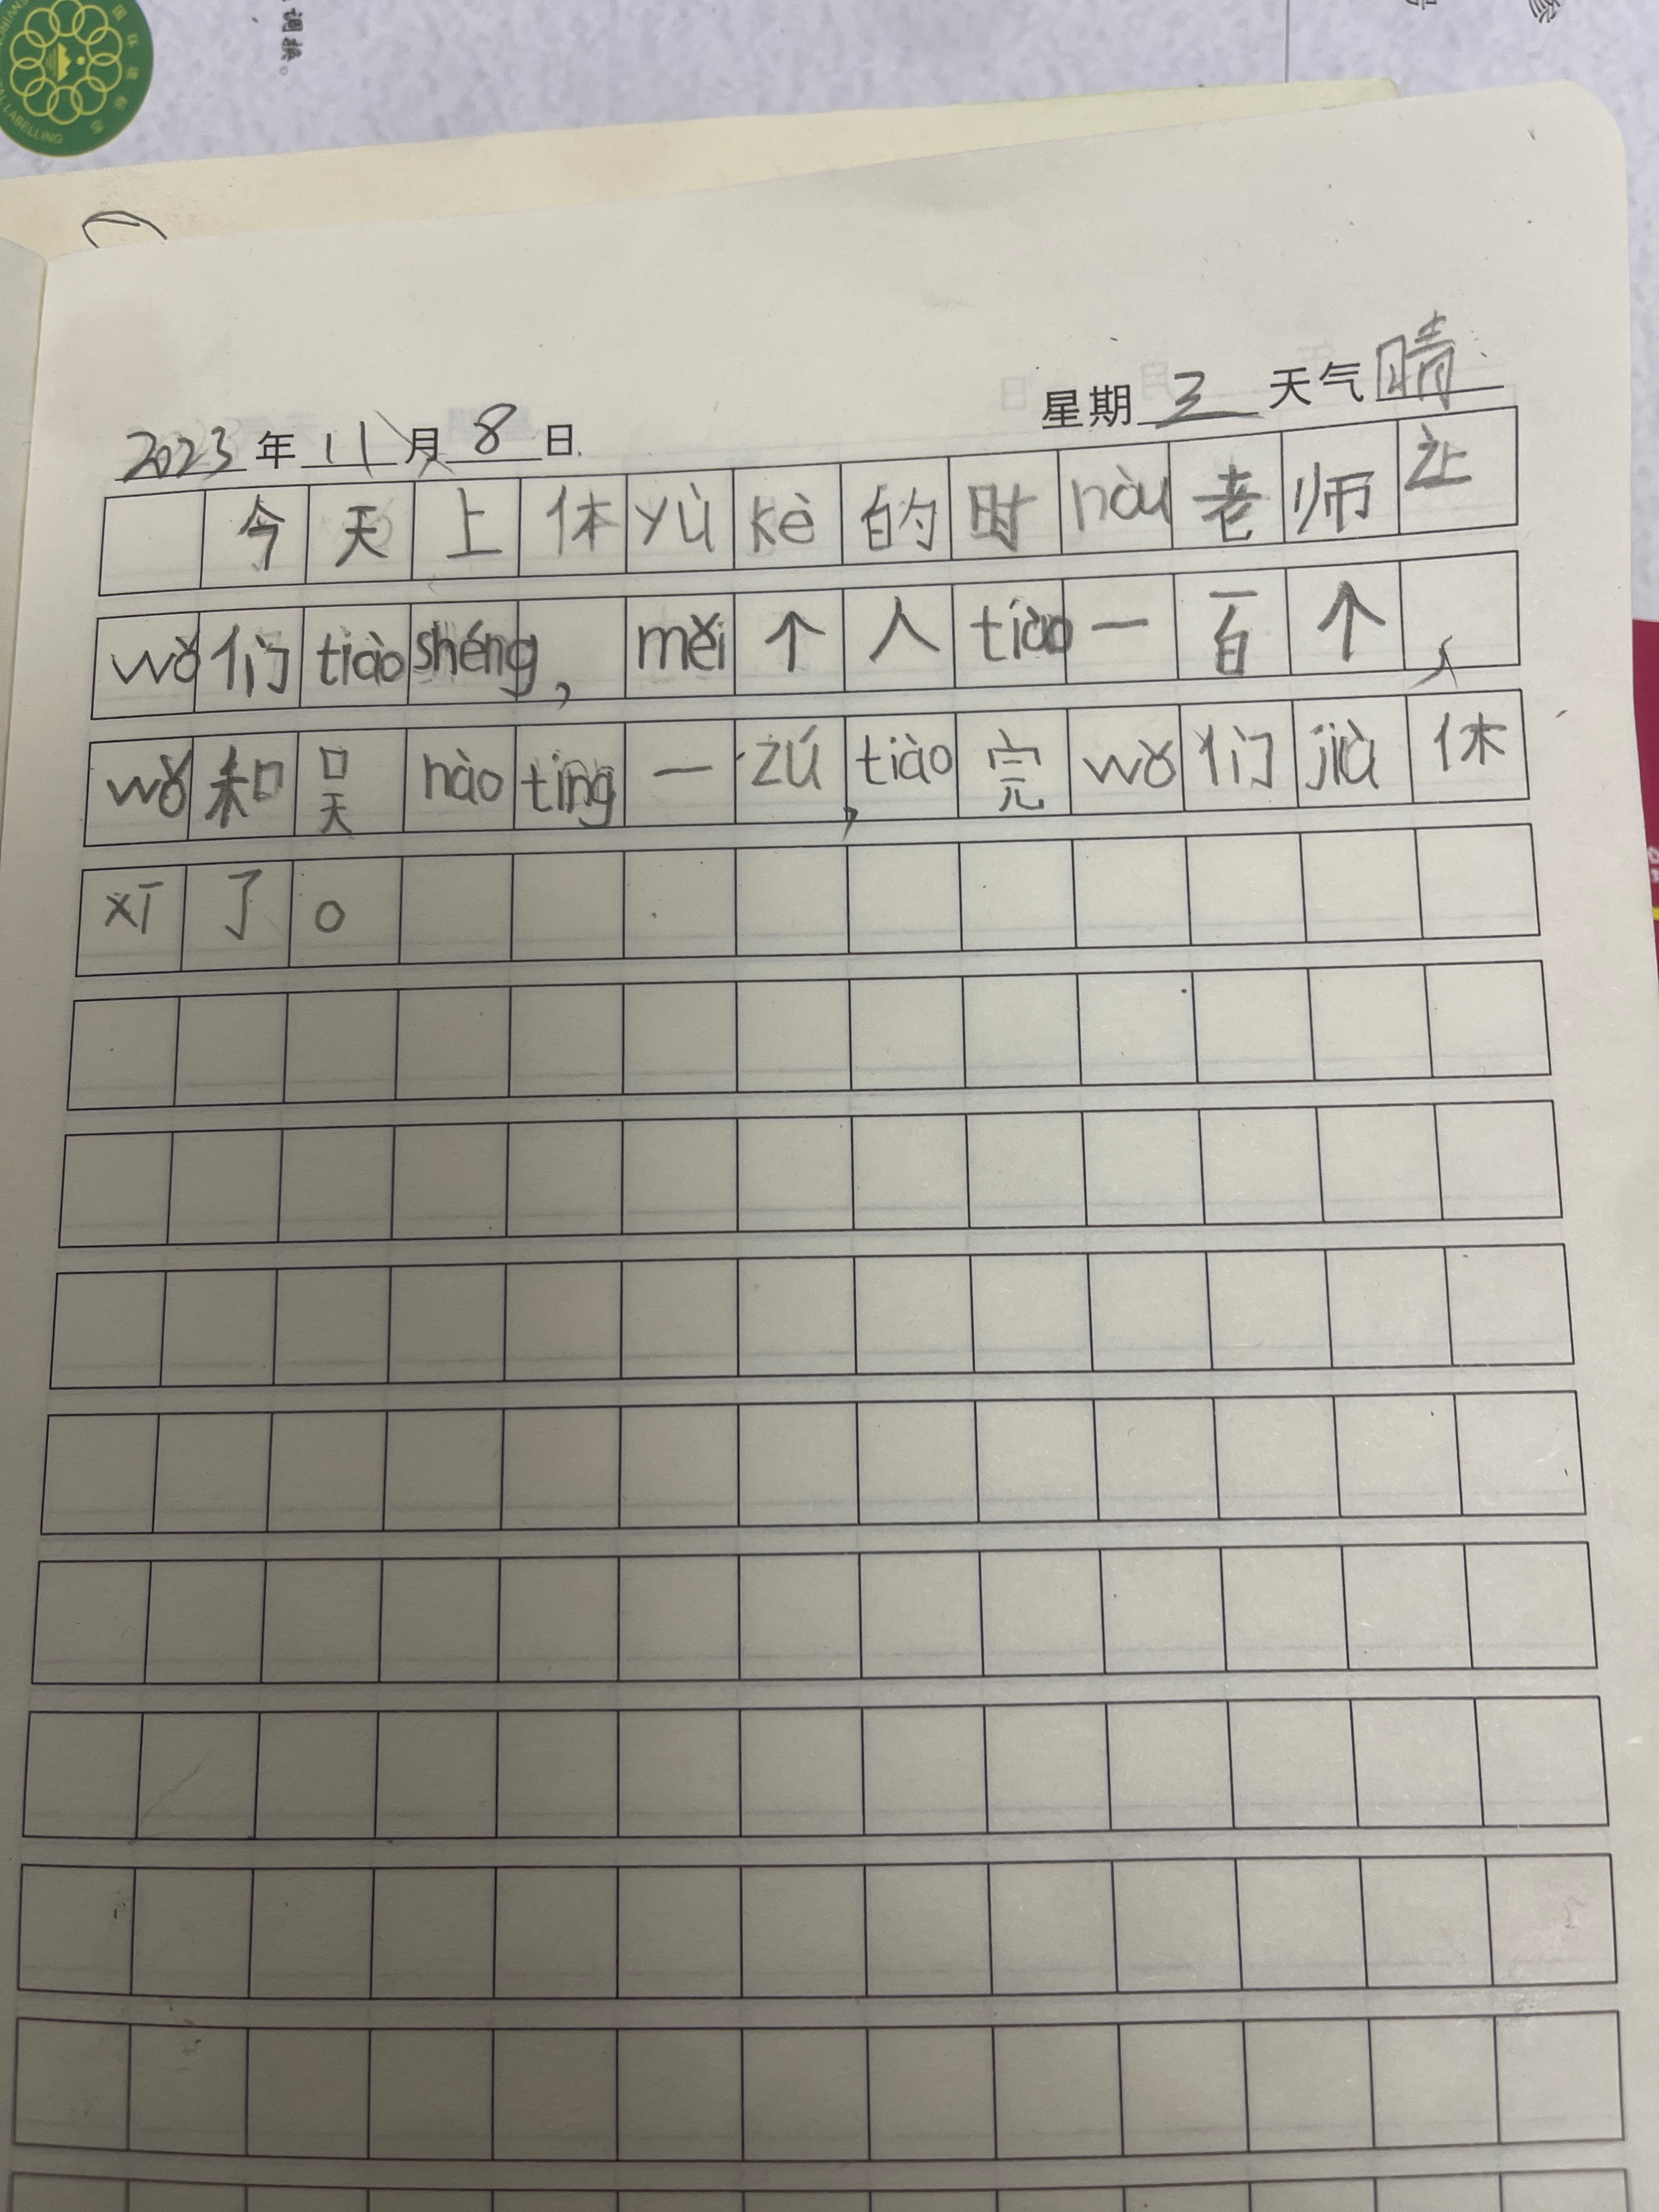 调换。
LABELLING
2023年11月8日 星期三 天气晴
今天上体yù kè的时hòu老师让
wǒ们tiào shéng，měi个人tiào一百个，
wǒ和吴hào tíng一zú，tiào完wǒ们jiù休
xī了。